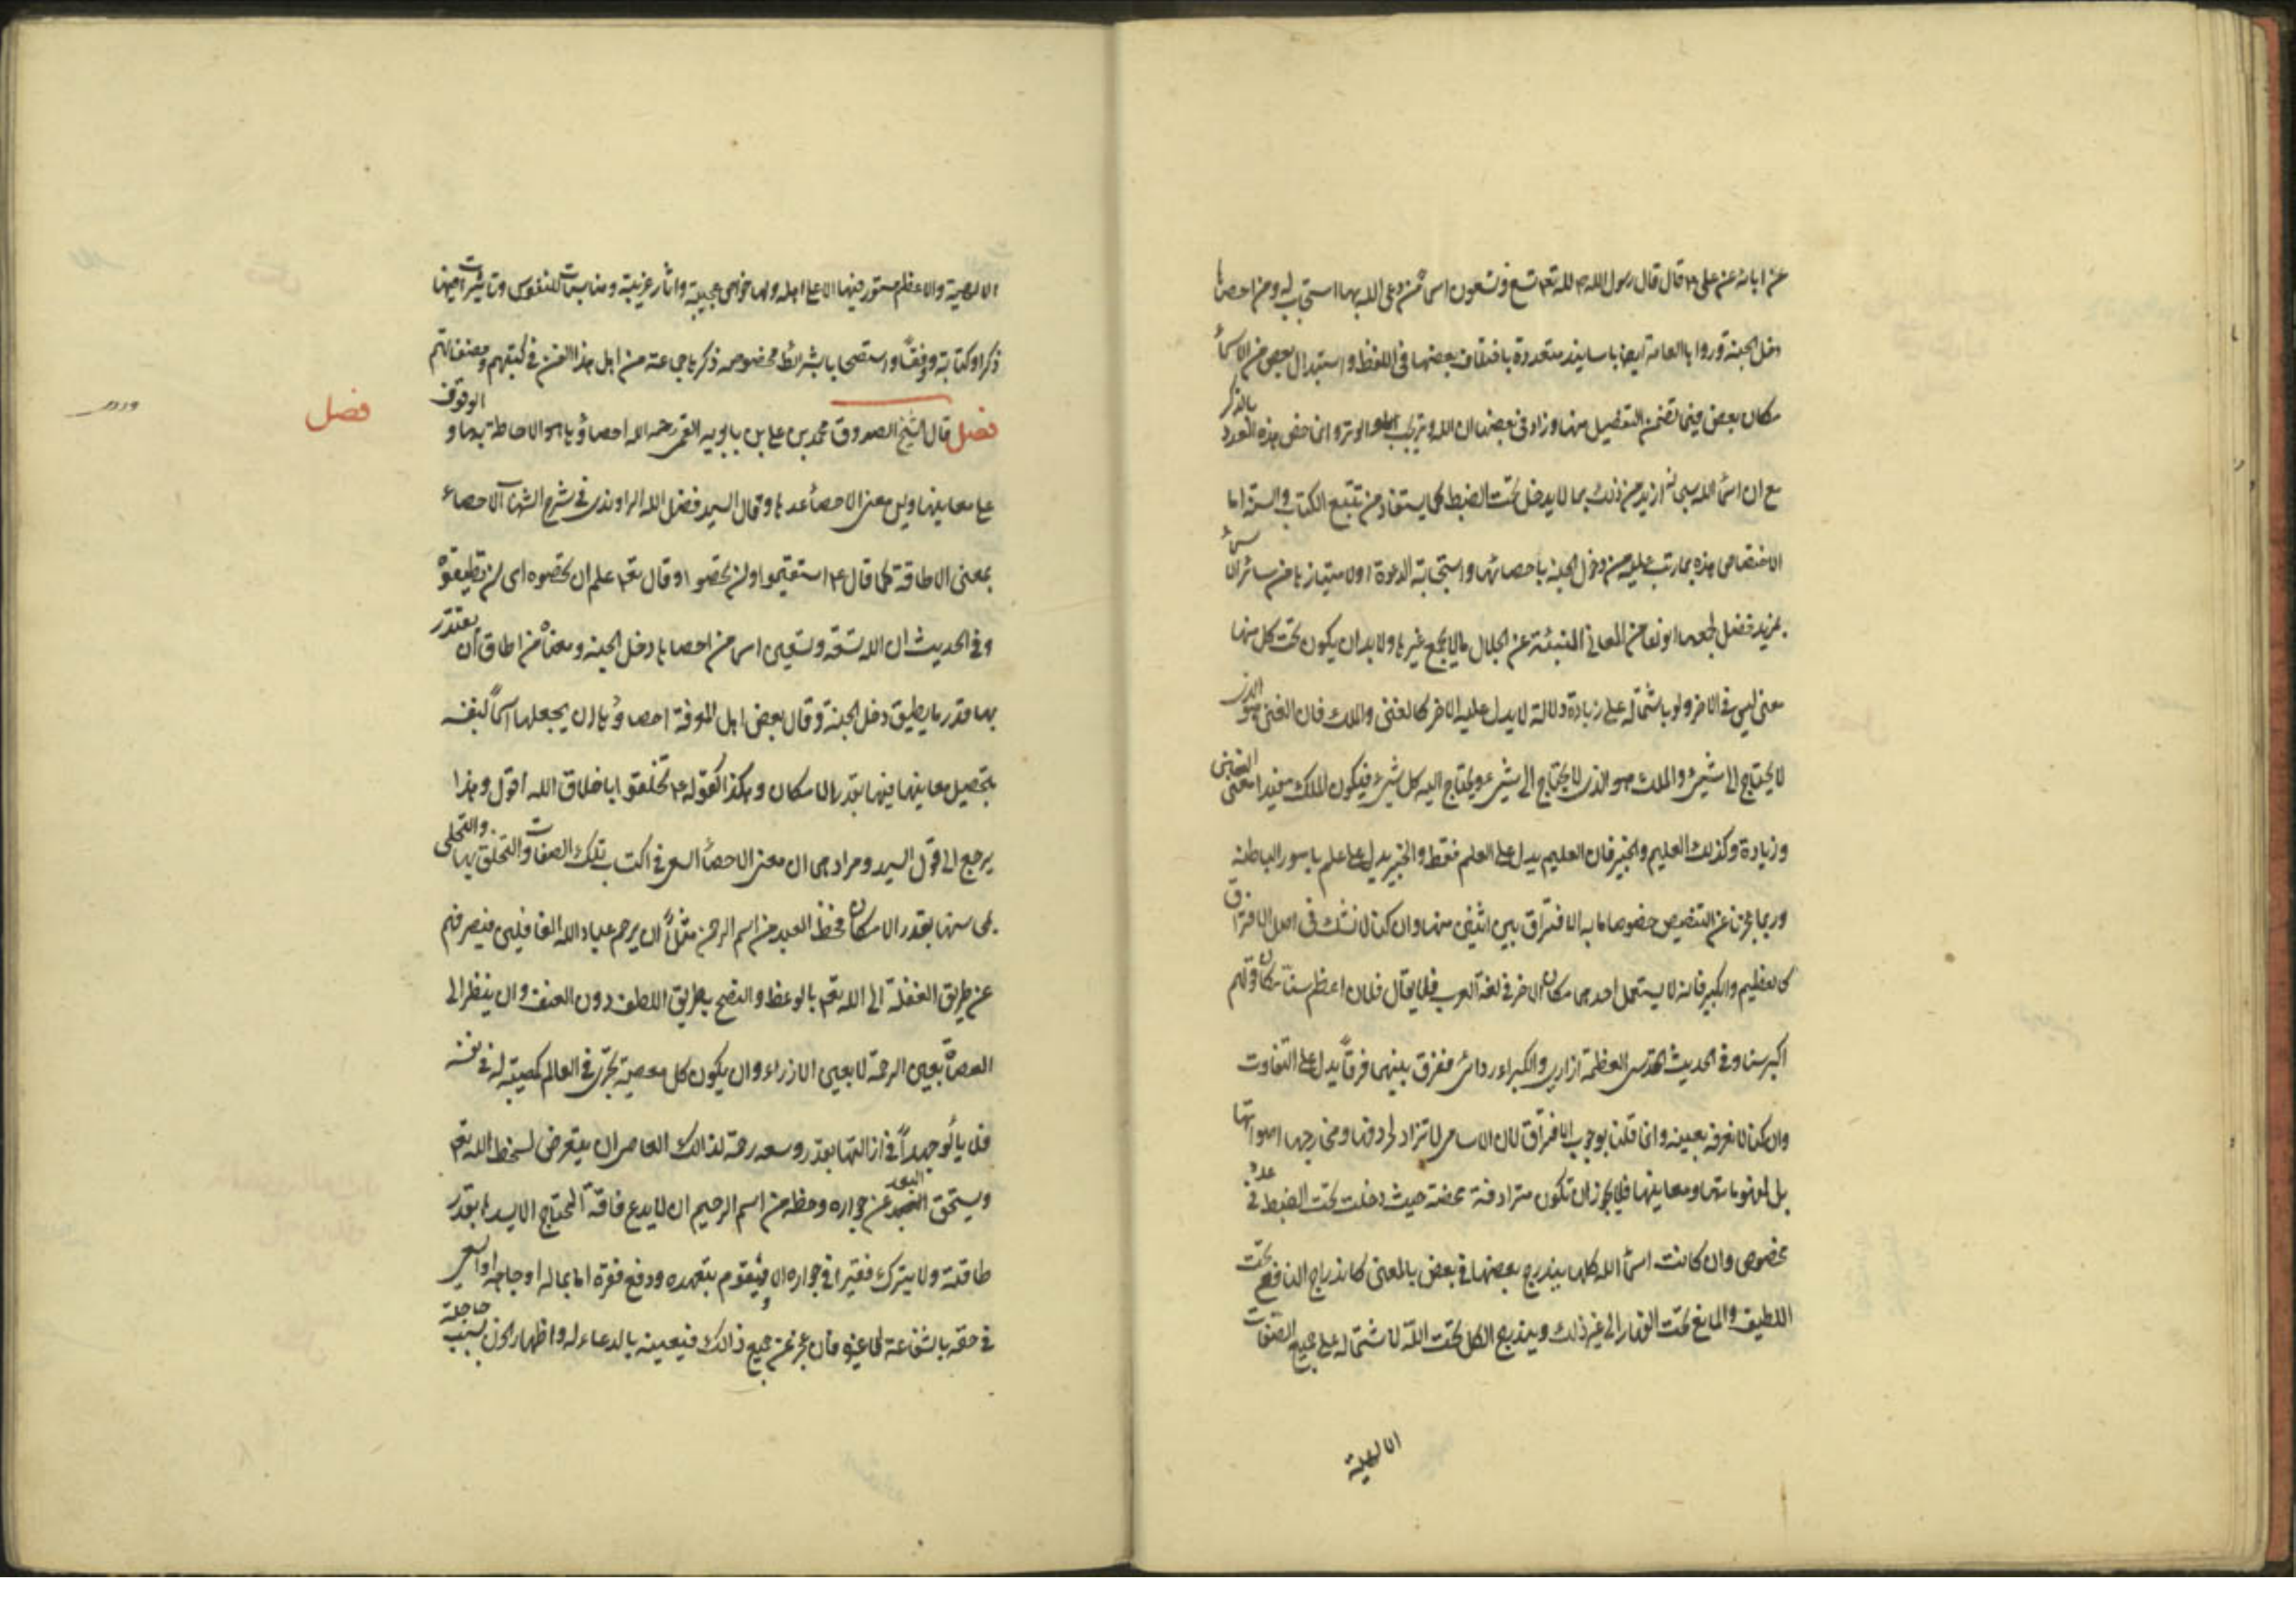 عن ابائه عن على ع قال قال رسول الله ص لله تعم تسع وتسعون اسما من دعى الله بها استجاب له ومن احصاها
دخل الجنة وروا ها العامة ايضا باسانيد متعددة باختلاف بعضها فى اللفظ واستبدال بعض من الاسماء
مكان بعض فيما تضمن التفصيل منها وزاد فى بعضها ان الله وتر يحب الوتر وانما خص هذه العدد بالذكر
مع ان اسماء الله سبحانه ازيد من ذلك بما لا يدخل تحت الضبط كما يستفاد من تتبع الكتاب والسنة اما
الاختصاص هذه بما رتب عليه من دخول الجنة باحصائها واستجابة الدعوة او لامتيازها من سائر الاسماء
بمزيد فضل لجمعها انواعا من المعانى المنبئة عن الجلال ما لا يجمع غيرها ولا بد ان يكون تحت كل منها
معنى ليس فى الاخر ولو باشتماله على زيادة دلالة لا يدل عليه الاخر كالغنى والملك فان الغنى هو الذى
لا يحتاج الى شىء والملك هو الذى لا يحتاج الى شىء ويحتاج اليه كل شىء فيكون الملك مفيدا معنى الغنى
وزيادة وكذلك العليم والخبير فان العليم يدل على العلم فقط والخبير يدل على علم بامور الباطنه
وربما عجزنا عن التنصيص خصوصا ما به الافتراق بين اثنين منها وان كنا لا نشك فى اصل الافتراق
كالعظيم والكبير فانه لا يستعمل احدهما مكان الاخر فى لغة العرب فلا يقال فلان اعظم سنا مكان قولهم
اكبر سنا وفى الحديث القدسى العظمة ازارى والكبرياء ردائى ففرق بينهما فرقا يدل على التفاوت
وان كنا لا نعرفه بعينه وانما قلنا بوجوب الافتراق لان الاسامى لا تراد لحروفها ومخارجها اصواتها
بل لمفهوماتها ومعانيها فلا يجوز ان تكون مترادفة محضة حيث دخلت تحت الضبط فى عدد
مخصوص وان كانت اسماء الله كلها يندرج بعضها فى بعض بالمعنى كاندراج النافع تحت
اللطيف والمانع تحت القهار الى غير ذلك ويندرج الكل تحت الله لاشتماله على جميع الصفات
الالهية
الالهية والاعظم مستور فيها الا على اهله ولها خواص عجيبة واثار غريبة ومناسبات للنفوس وتاثيرات فيها
ذكرا وكتابة ووفقا واستصحابا بشرائط مخصوصه ذكرها جماعة من اهل هذا الفن فى كتبهم ومصنفاتهم
فصل
فصل قال الشيخ الصدوق محمد بن على بن بابويه القمى رحمه الله احصاؤها هو الاحاطة بها والوقوف
على معانيها وليس معنى الاحصاء عدها وقال السيد فضل الله الراوندى فى شرح الشهاب الاحصاء
بمعنى الاطاقة كما قال ع استقيموا ولن تحصوا وقال تعم علم ان لن تحصوه اى لن تطيقوه
وفى الحديث ان لله تسعة وتسعين اسما من احصاها دخل الجنه ومعناه من اطاق ان يعتذر
بها قدر ما يطيق دخل الجنة وقال بعض اهل المعرفة احصاؤها ان يجعلها اسما لنفسه
بتحصيل معانيها فيها بقدر الامكان وهكذا كقوله ع تخلقوا باخلاق الله اقول وهذا
يرجع الى قول السيد ومرادهما ان معنى الاحصاء السعى فى اكتساب تلك الصفات والتخلق بها والتحلى
بمحاسنها بقدر الامكان فحظ العبد من اسم الرحمن مثلا ان يرحم عباد الله الغافلين فيصرفهم
عن طريق الغفلة الى الله تعم بالوعظ والنصح بطريق اللطف دون العنف وان ينظر الى
العصاة بعين الرحمة لا بعين الازراء وان يكون كل معصية تجرى فى العالم كمصيبته له فى نفسه
فلا يالو جهدا فى ازالتها بقدر وسعه رحمة لذالك العاصى ان يتعرض لسخط الله تعم
ويستحق البعد عن جواره وحظه من اسم الرحيم ان لا يدع فاقة المحتاج الا يسدها بقدر
طاقته ولا يترك فقيرا فى جواره الا ويقوم بتعهده ودفع فقره اما بماله او جاهه او السعى
فى حقه بالشفاعة الى غيره فان عجز عن جميع ذالك فيعينه بالدعاء له واظهار الحزن بسبب حاجته